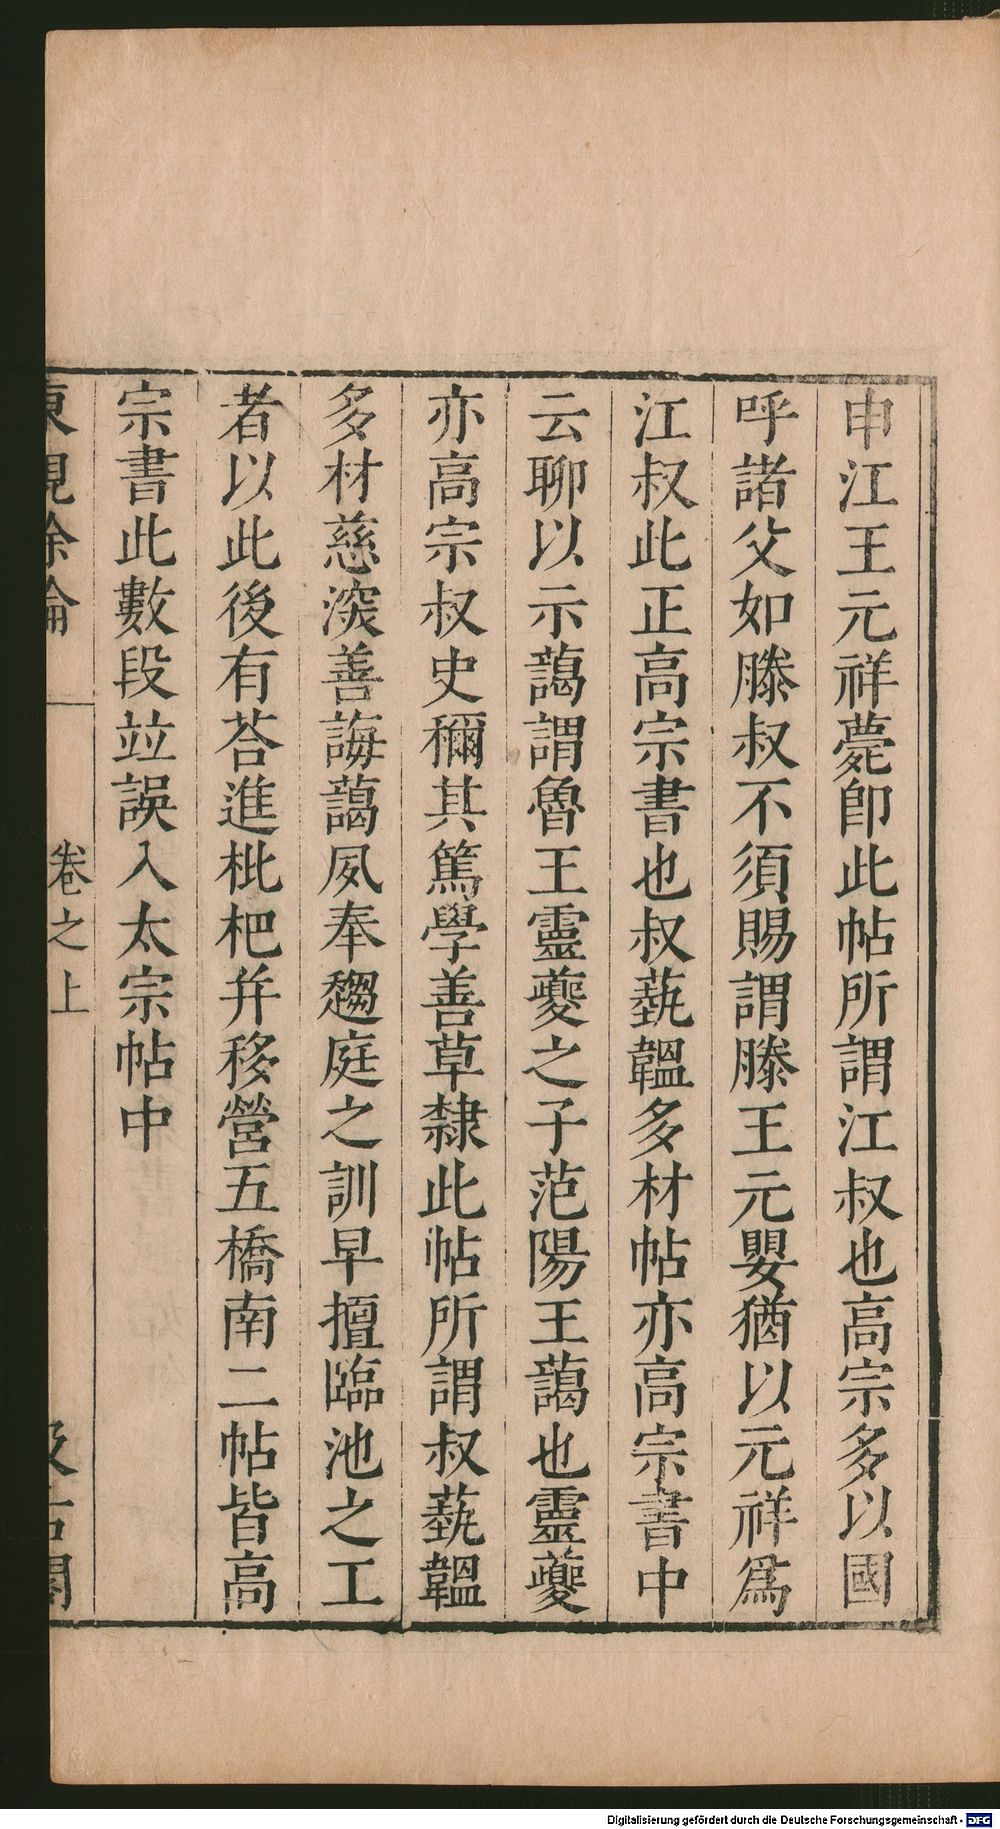 申江王元祥薨卽此帖所謂江叔也高宗多以國
呼諸父如滕叔不須賜謂滕王元嬰猶以元祥爲
江叔此正高宗書也叔蓺韞多材帖亦高宗書中
云聊以示藹謂魯王靈夔之子范陽王藹也靈夔
亦高宗叔史稱其篤學善草隸此帖所謂叔蓺韞
多材慈深善誨藹夙奉趨庭之訓早擅臨池之工
者以此後有荅進枇杷幷移營五橋南二帖皆高
宗書此數段竝誤入太宗帖中
東觀餘論 卷之上 汲古閣
Digitalisierung gefördert durch die Deutsche Forschungsgemeinschaft - DFG